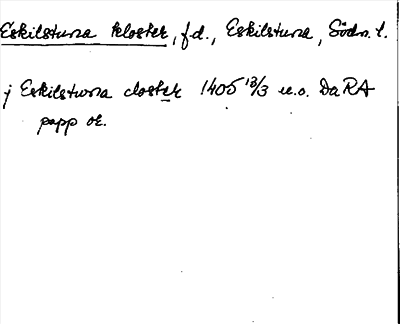 Eskilstuna kloster, f.d., Eskilstuna, Södm. l.
j Eskilstuna closter 1405 13/3 u.o. DaRA
papp or.